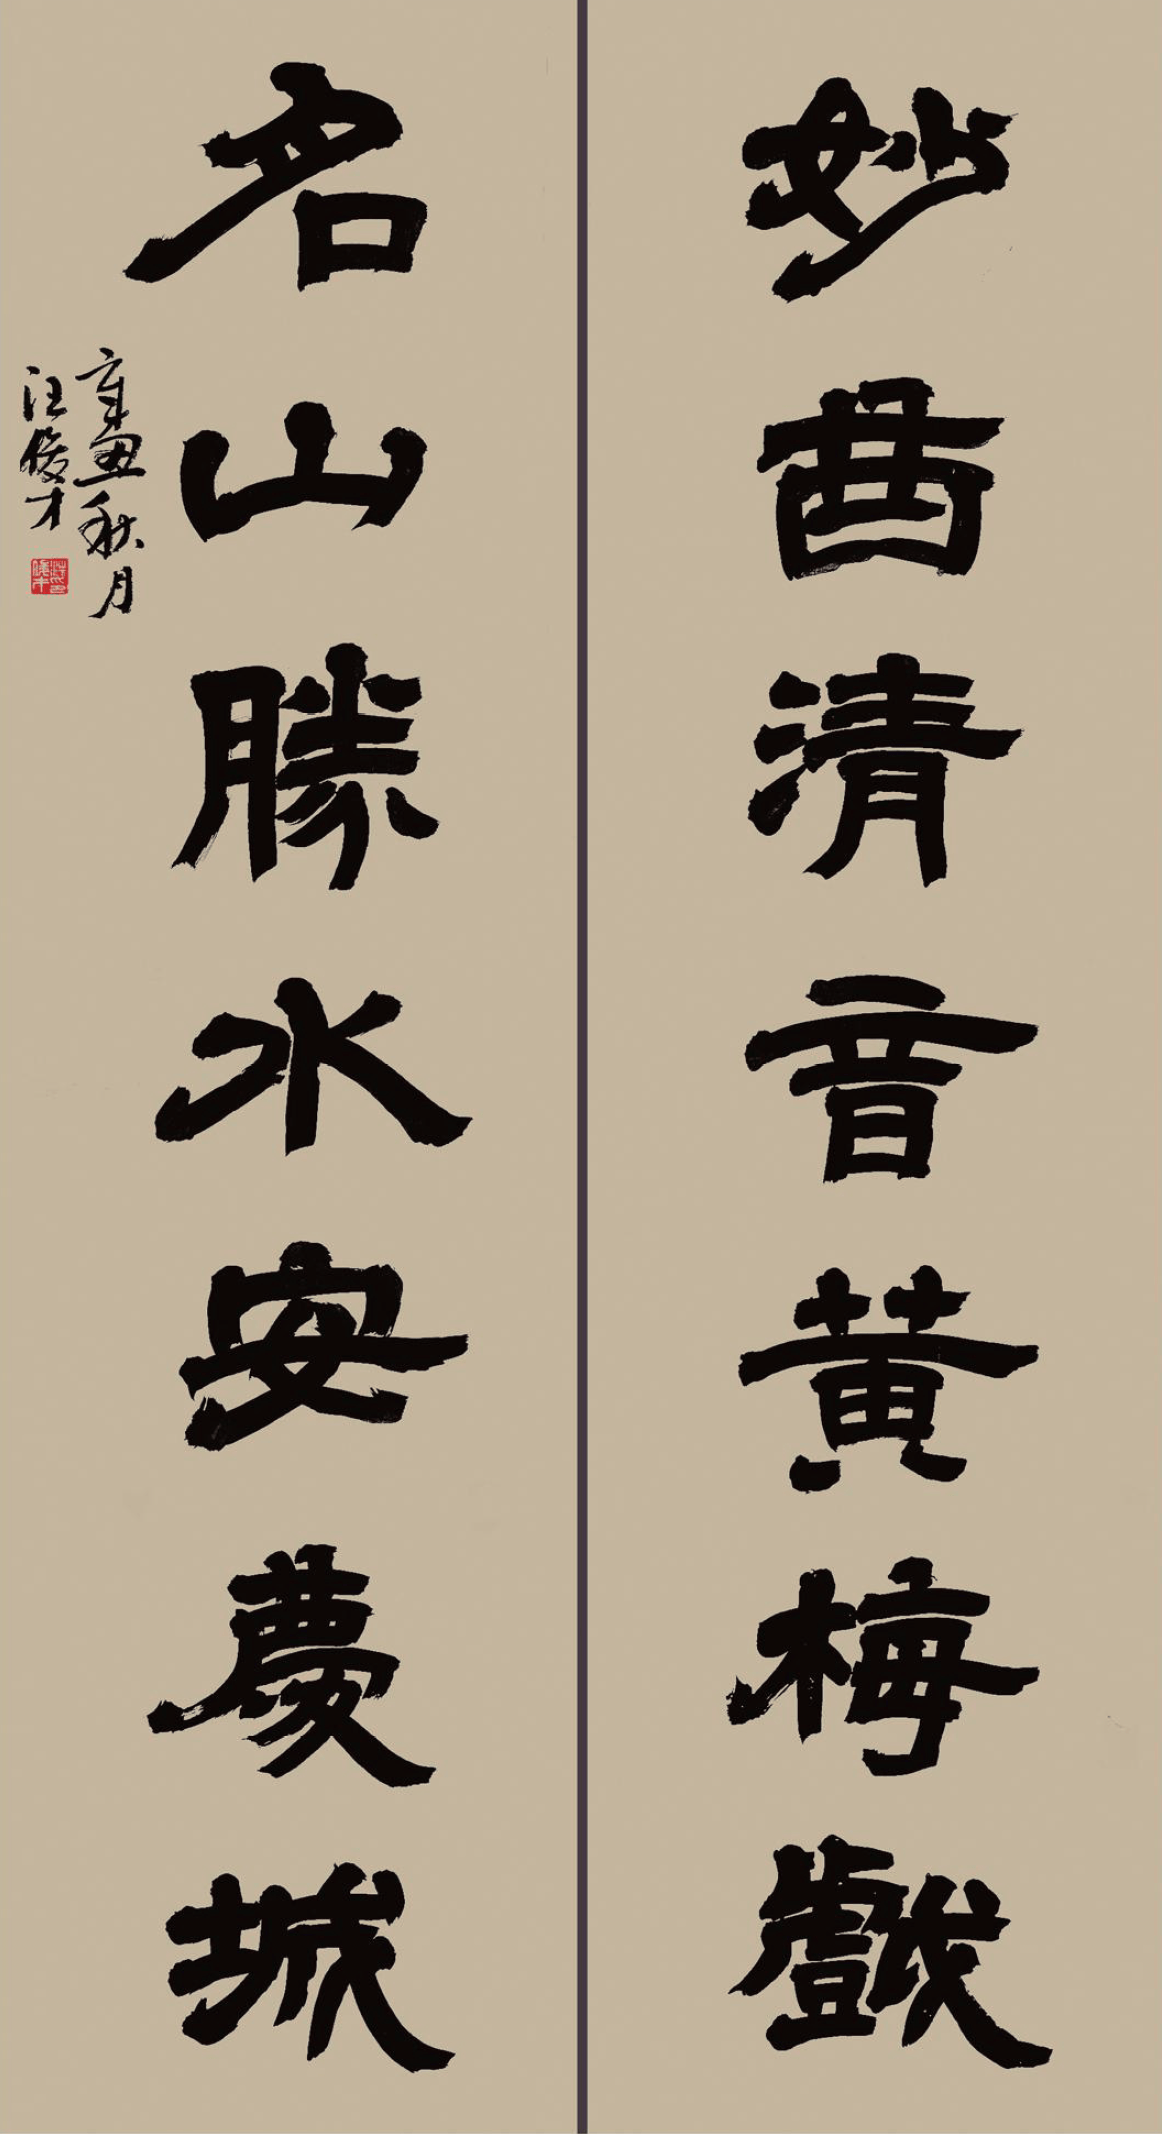 妙曲清音黃梅戲
名山勝水安慶城
辛丑秋月
汪俊才